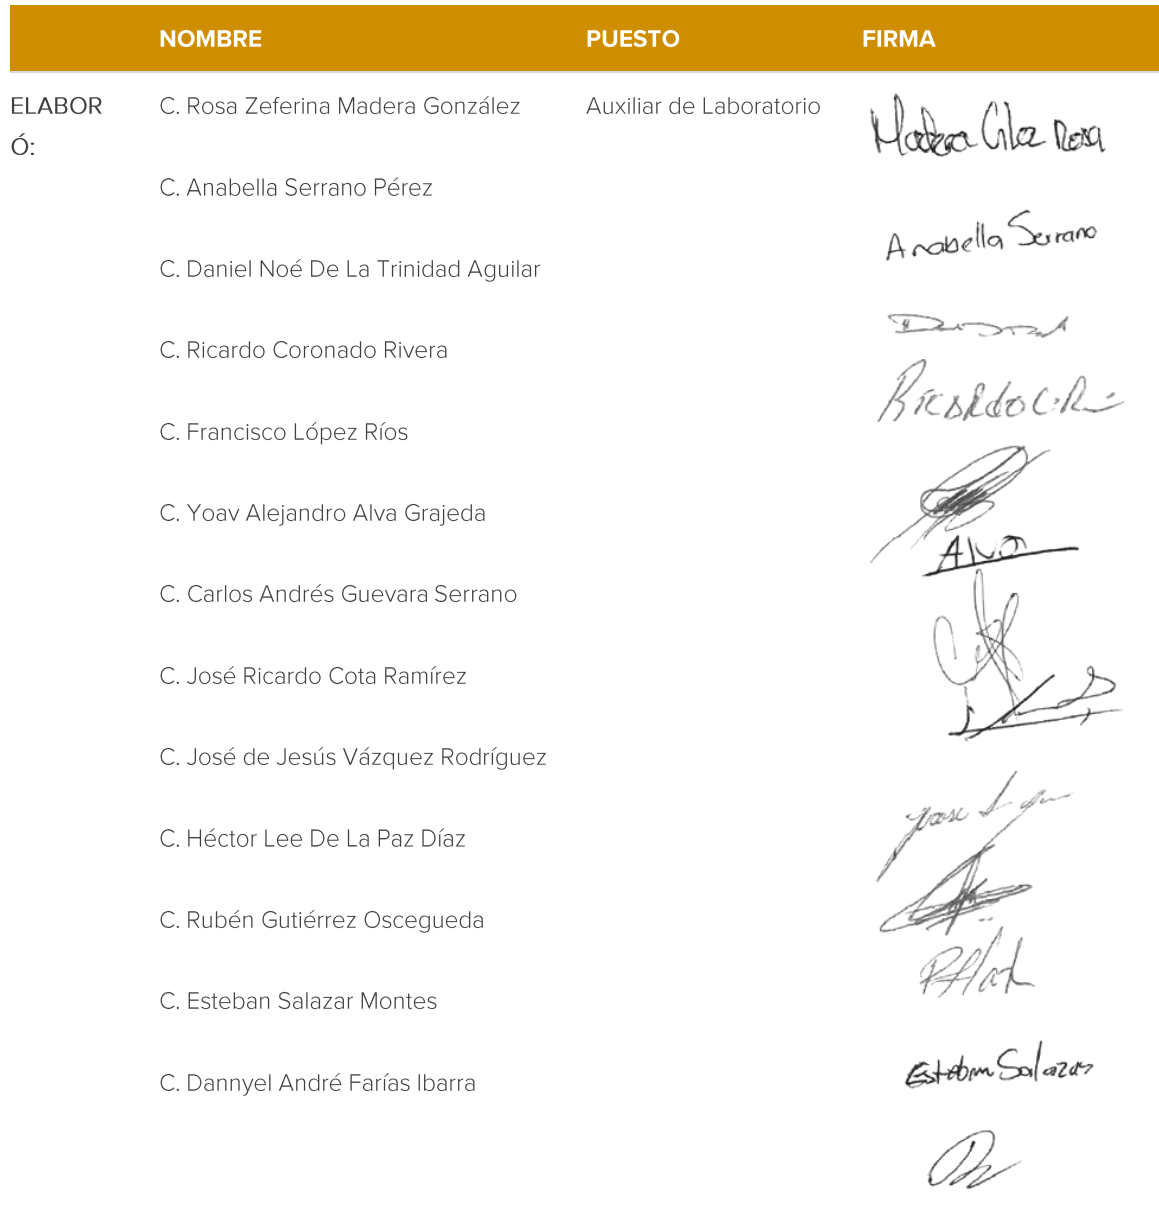 NOMBRE PUESTO FIRMA
ELABOR C. Rosa Zeferina Madera González Auxiliar de Laboratorio
Ó:
Madera Glez Rosa
C. Anabella Serrano Pérez
Anabella Serrano
C. Daniel Noé De La Trinidad Aguilar
C. Ricardo Coronado Rivera
Ricardo C.R.
C. Francisco López Ríos
C. Yoav Alejandro Alva Grajeda
Alva
C. Carlos Andrés Guevara Serrano
C. José Ricardo Cota Ramírez
C. José de Jesús Vázquez Rodríguez
C. Héctor Lee De La Paz Díaz
C. Rubén Gutiérrez Oscegueda
C. Esteban Salazar Montes
Esteban Salazar
C. Dannyel André Farías Ibarra